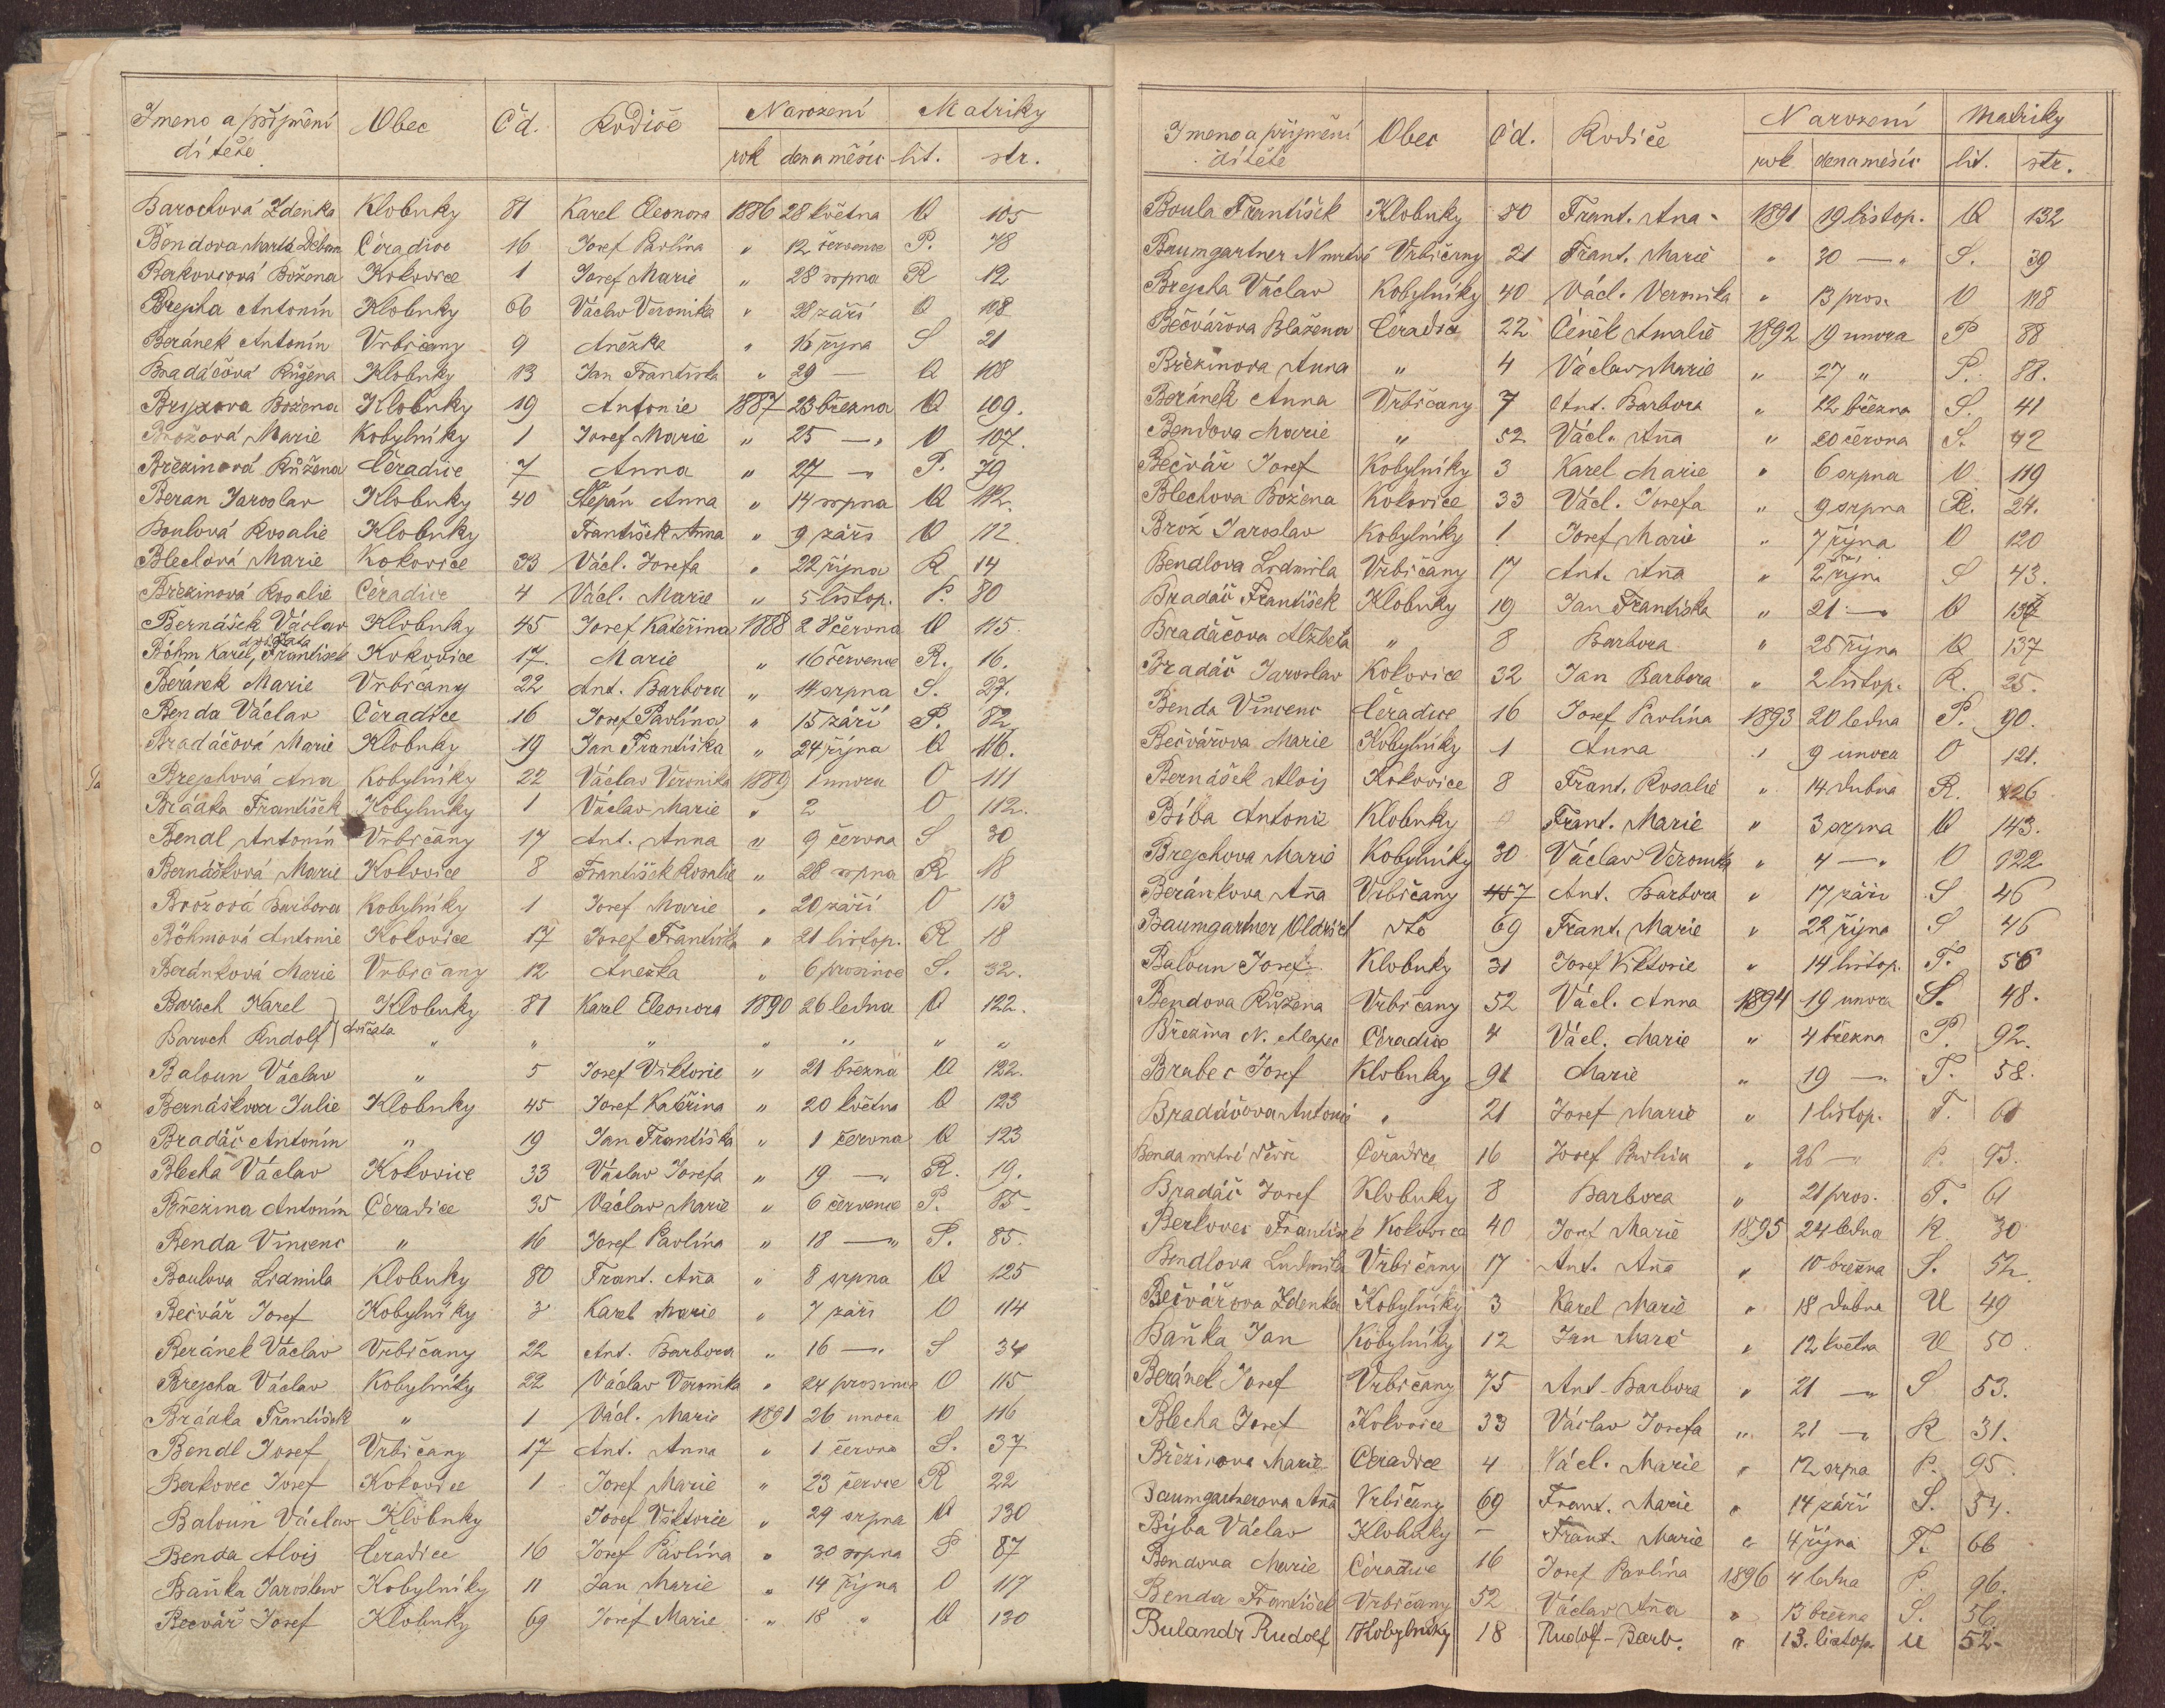 Jmeno a příjmění dítěte Obec Čd. Rodiče Narození Matriky
rok den a měsíc lit. str.
Barochová Zdenka Klobuky 81 Karel Eleonora 1886 28 května Q 105
Bendova Marta Čeradice 16 Josef Pavlína " 12 července P. 78
Berkovcová Božena Kokovice 1 Josef Marie " 28 srpna R 12
Brejcha Antonín Klobuky 66 Václav Veronika " 28 září Q 108
Beránek Antonín Vrbičany 9 Anežka " 16 října S 21
Bradáčová Růžena Klobuky 13 Jan Františka " 29 — Q 108
Božena Klobuky 19 Antonie 1887 23 března Q 109.
Brožová Marie Kobylníky 1 Josef Marie " 25 —" O 107.
Březinová Růžena Čeradice 7 Anna " 27 —" P. 79
Beran Jaroslav Klobuky 40 Štěpán Anna " 14 srpna Q 112.
Boulová Rosalie Klobuky František Anna " 9 září Q 112.
Blechová Marie Kokovice 33 Václ. Josefa " 22 října R 14
Březinová Rosalie Čeradice 4 Václ. Marie " 5 listop. P. 80
Bernášek Václav Klobuky 45 Josef Kateřina 1888 2 června Q 115.
dvojčata
Böhm Karel, František Kokovice 17. Marie " 16 července R. 16.
Beránek Marie Vrbičany 22 Ant. Barbora " 14 srpna S. 27.
Benda Václav Čeradice 16 Josef Pavlína " 15 září P. 82
Bradáčová Marie Klobuky 19 Jan Františka " 24 října Q 116.
Brejchová Ana Kobylníky 22 Václav Veronika 1889 1 unora O 111
Brádka František Kobylníky 1 Václav Marie " 2 O 112.
Bendl Antonín Vrbičany 17 Ant. Anna " 9 června S 30
Bernášková Marie Kokovice 8 František Rosalie " 28 srpna R 18
Brožová Barbora Kobylníky 1 Josef Marie " 20 září O 113
Böhmová Antonie Kokovice 17 Josef Františka " 21 listop. R 18
Beránková Marie Vrbičany 12 Anežka " 6 prosince S. 32.
Baroch Karel Klobuky 81 Karel Eleonora 1890 26 ledna Q 122.
Baroch Rudolf } dvičata " " " " " " "
Baloun Václav " 5 Josef Viktorie " 21 března Q 122.
Bernáškova Julie Klobuky 45 Josef Kateřina " 20 května Q 123
Bradáč Antonín " 19 Jan Františka " 1 června Q 123
Blecha Václav Kokovice 33 Václav Josefa " 19 —" R. 19.
Březina Antonín Čeradice 35 Václav Marie " 6 července P. 85-
Benda Vincenc " 16 Josef Pavlína " 18 —" P. 85.
Boulova Lidmila Klobuky 80 Frant. Aňa " 8 srpna Q 125
Bečvář Josef Kobylníky 3 Karel Marie " 7 září O 114
Beránek Václav Vrbičany 22 Ant. Barbora " 16 —" S 34
Brejcha Václav Kobylníky 22 Václav Veronika " 24 prosince O 115
Brádka František " 1 Václ. Marie 1891 26 unora O 116
Bendl Josef Vrbičany 17 Ant. Anna " 1 června S. 37
Berkovec Josef Kokovice 1 Josef Marie " 23 červce R 22
Baloun Václav Klobuky Josef Viktorie " 29 srpna Q 130
Benda Alois Čeradice 16 Josef Pavlína " 30 srpna P 87
Baňka Jaroslav Kobylníky 11 Jan Marie " 14 října O 117
Bečvář Josef Klobuky 69 Josef Marie " 18 " Q 130
Jmeno a příjmění dítěte Obec Čd. Rodiče Narození Matriky
rok den a měsíc lit. str.
Boula František Klobuky 80 Frant. Ana - 1891 19 listop. Q 132
Baumgartner N mrtvé Vrbičany 21 Frant. Marie " 30 —" S. 39
Brejcha Václav Kobylníky 40 Václ. Veronika " 13 pros. O 118
Bečvářova Blažena Čeradice 22 Čeněk Amalie 1892 19 unora P 88
Březinova Anna " 4 Václav Marie " 27 " P. 88.
Beránek Anna Vrbičany 7 Ant. Barbora " 22 března S. 41
Bendova Marie " 52 Václ. Aňa " 20 června S. 42
Bečvář Josef Kobylníky 3 Karel Marie " 6 srpna O 119
Blechova Božena Kokovice 33 Václ. Josefa " 9 srpna R. 24.
Brož Jaroslav Kobylníky 1 Josef Marie " 7 října O 120
Bendlova Lidmila Vrbičany 17 Ant. Aňa " 2 října S 43.
Bradáč František Klobuky 19 Jan Františka " 21 —" Q 137
Bradáčova Alžběta " 8 Barbora " 25 října Q 137
Bradáč Jaroslav Kokovice 32 Jan Barbora " 2 listop. R. 25.
Benda Vincenc Čeradice 16 Josef Pavlína 1893 20 ledna P. 90.
Bečvářova Marie Kobylníky 1 Anna " 9 unora O 121.
Bernášek Alois Kokovice 8 Frant. Rosalie " 14 dubna R. 26
Bíba Antonie Klobuky Frant. Marie " 3 srpna Q 143.
Brejchova Marie Kobylníky 30 Václav Veronika " 4 —" O 122
Beránkova Aňa Vrbičany 7 Ant. Barbora " 17 září S 46
Baumgartner Oldřich dto 69 Frant. Marie " 22 října S 46
Baloun Josef Klobuky 31 Josef Viktorie " 14 listop. T. 56
Bendova Růžena Vrbičany 52 Václ. Anna 1894 19 unora S. 48.
Březina N. chlapec Čeradice 4 Václ. Marie " 4 března P. 92.
Brabec Josef Klobuky 91 Marie " 19 —" T. 58.
Bradáčova Antonie " 21 Josef Marie " 1 listop. T. 60
Benda mrtvé Čeradice 16 Josef Pavlína " 26 —" P. 93.
Bradáč Josef Klobuky 8 Barbora " 21 pros. T. 61
Berkovec František Kokovice 40 Josef Marie 1895 24 ledna R 30
Bendlova Ludmila Vrbičany 17 Ant. Aňa " 10 března S. 52.
Bečvářova Zdenka Kobylníky 3 Karel Marie " 18 dubna U 49
Baňka Jan Kobylníky 12 Jan Marie " 12 května U 50
Beránek Josef Vrbičany 75 Ant. Barbora " 21 —" S 53.
Blecha Josef Kokovice 33 Václav Josefa " 21 —" R 31.
Březinova Marie Čeradice 4 Václ. Marie " 12 srpna P. 95.
Baumgartnerova Aňa Vrbičany 69 Frant. Marie " 14 září S. 54.
Býba Václav Klobuky — Frant. Marie " 4 října T. 66
Bendova Marie Čeradice 16 Josef Pavlína 1896 4 ledna P. 96.
Benda František Vrbičany 52 Václav Aňa " 13 března S. 56
Bulandr Rudolf Kobylníky 18 Rudolf - Barb. " 13. listop. U 52-